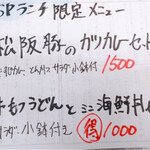 SPランチ限定メニュー
松阪豚のカツカレーセット
サラダ 小鉢付 1500
牛もつうどんとミニ海鮮丼
サラダ 小鉢付き 得 1000